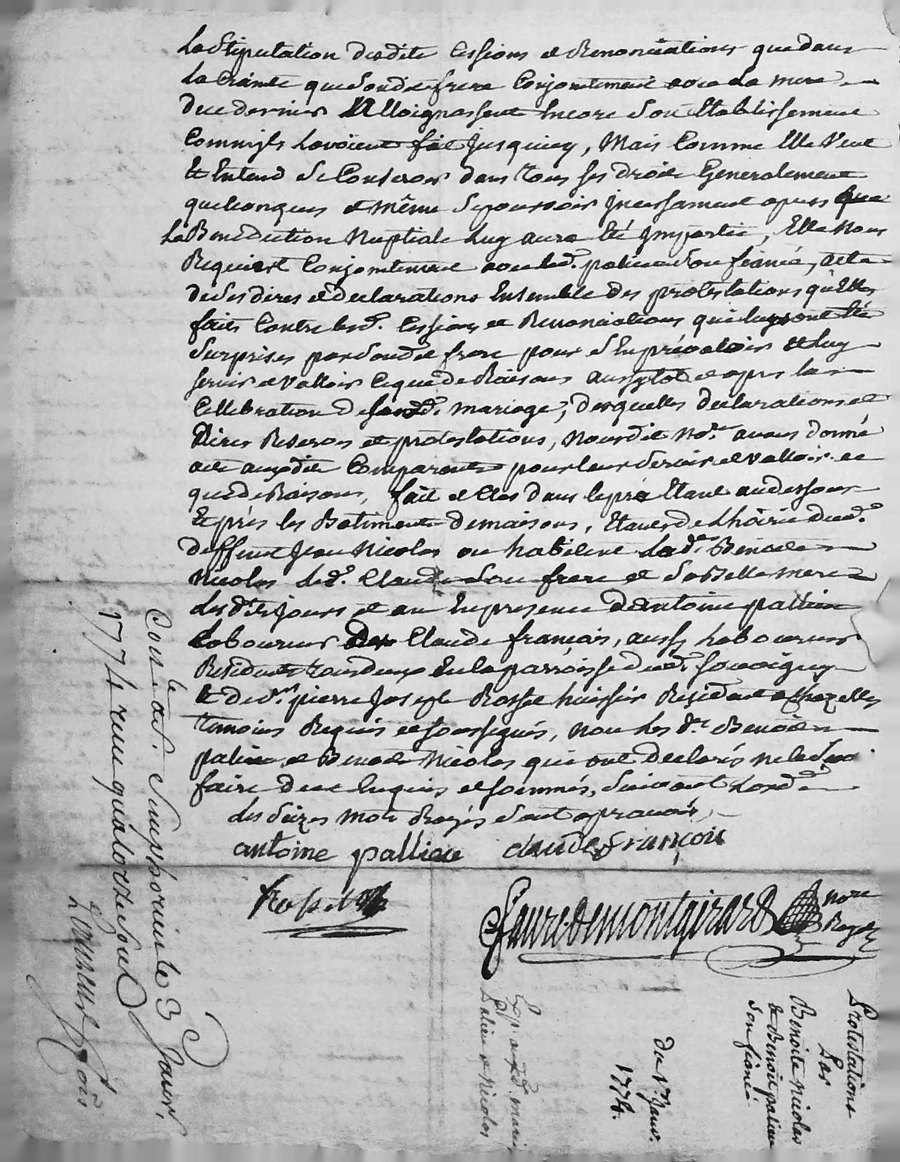 La Stipulation desdite Cessions et Renonciations que dans
la Crainte que Sondit frere Conjointement avec la mere
due dernier Elloignassent Encore Son Etablissement
Comm'ils Lavoient fait Jusquicy, Mais Comme Elle Veut
Et Entend Se Conserver dans tous ses droits Generalement
quelconques et même Se pourvoir Incessament apres que
La Benediction Nuptiale Luy aura Eté Impartie, Elle Nous
Requiert Conjointement avec led. palieu Son fiancé, acte
de Ses dires et declarations Ensemble des protestations qu'Elles
faits Contre lesd. Cessions et Renonciations qui luy ont Eté
Surprises par Sondit frere pour S'En prévaloir Et Luy
Servir et Valloir Ceque de Raisons aussytot et apres la
Cellebration de Sond. mariage; desquelles declarations et
Dires Reserves et protestations, Nousdit No.re avons donné
acte auxdit Comparants pour leur Servir et Valloir ce
que de Raisons, fait et Clos dans le pré Etant au dessous
Et près les Batiments de maisons, Etables de L'hoirie dud.
deffunt Jean Nicolas ou habitent lad. Benoite
Nicolas led. Claude Son frere et Sa Belle mere
lesd. Jours et an En presence d'Antoine pallieu
Laboureur Claude français, aussy Laboureur
Residents tous deux En la parroisse dud. Souvigny
Et de m. pierre Joseph Rosset huissier Resident a Chazelles
temoins Requis et soussignés, non les d. Benoit
palieu et Benoite Nicolas qui ont declarés ne le Savoir
faire de ce Enquis et Sommés, Suivant L'ord.e
des Seizes mots Rayés Sont aprouvés,
antoine pallieu claude françois
Rosset
Faure de montgirard no.re
Royal
Con.lé au. St Simphorien le 3 Janv.
1774 reçu quatorze sols
Protestations
Par
Benoite Nicolas
& Benoit palieu
Son fiancé
du 1.er Janv.
1774.
Exp. auxd. mariés
Palieu et Nicolas